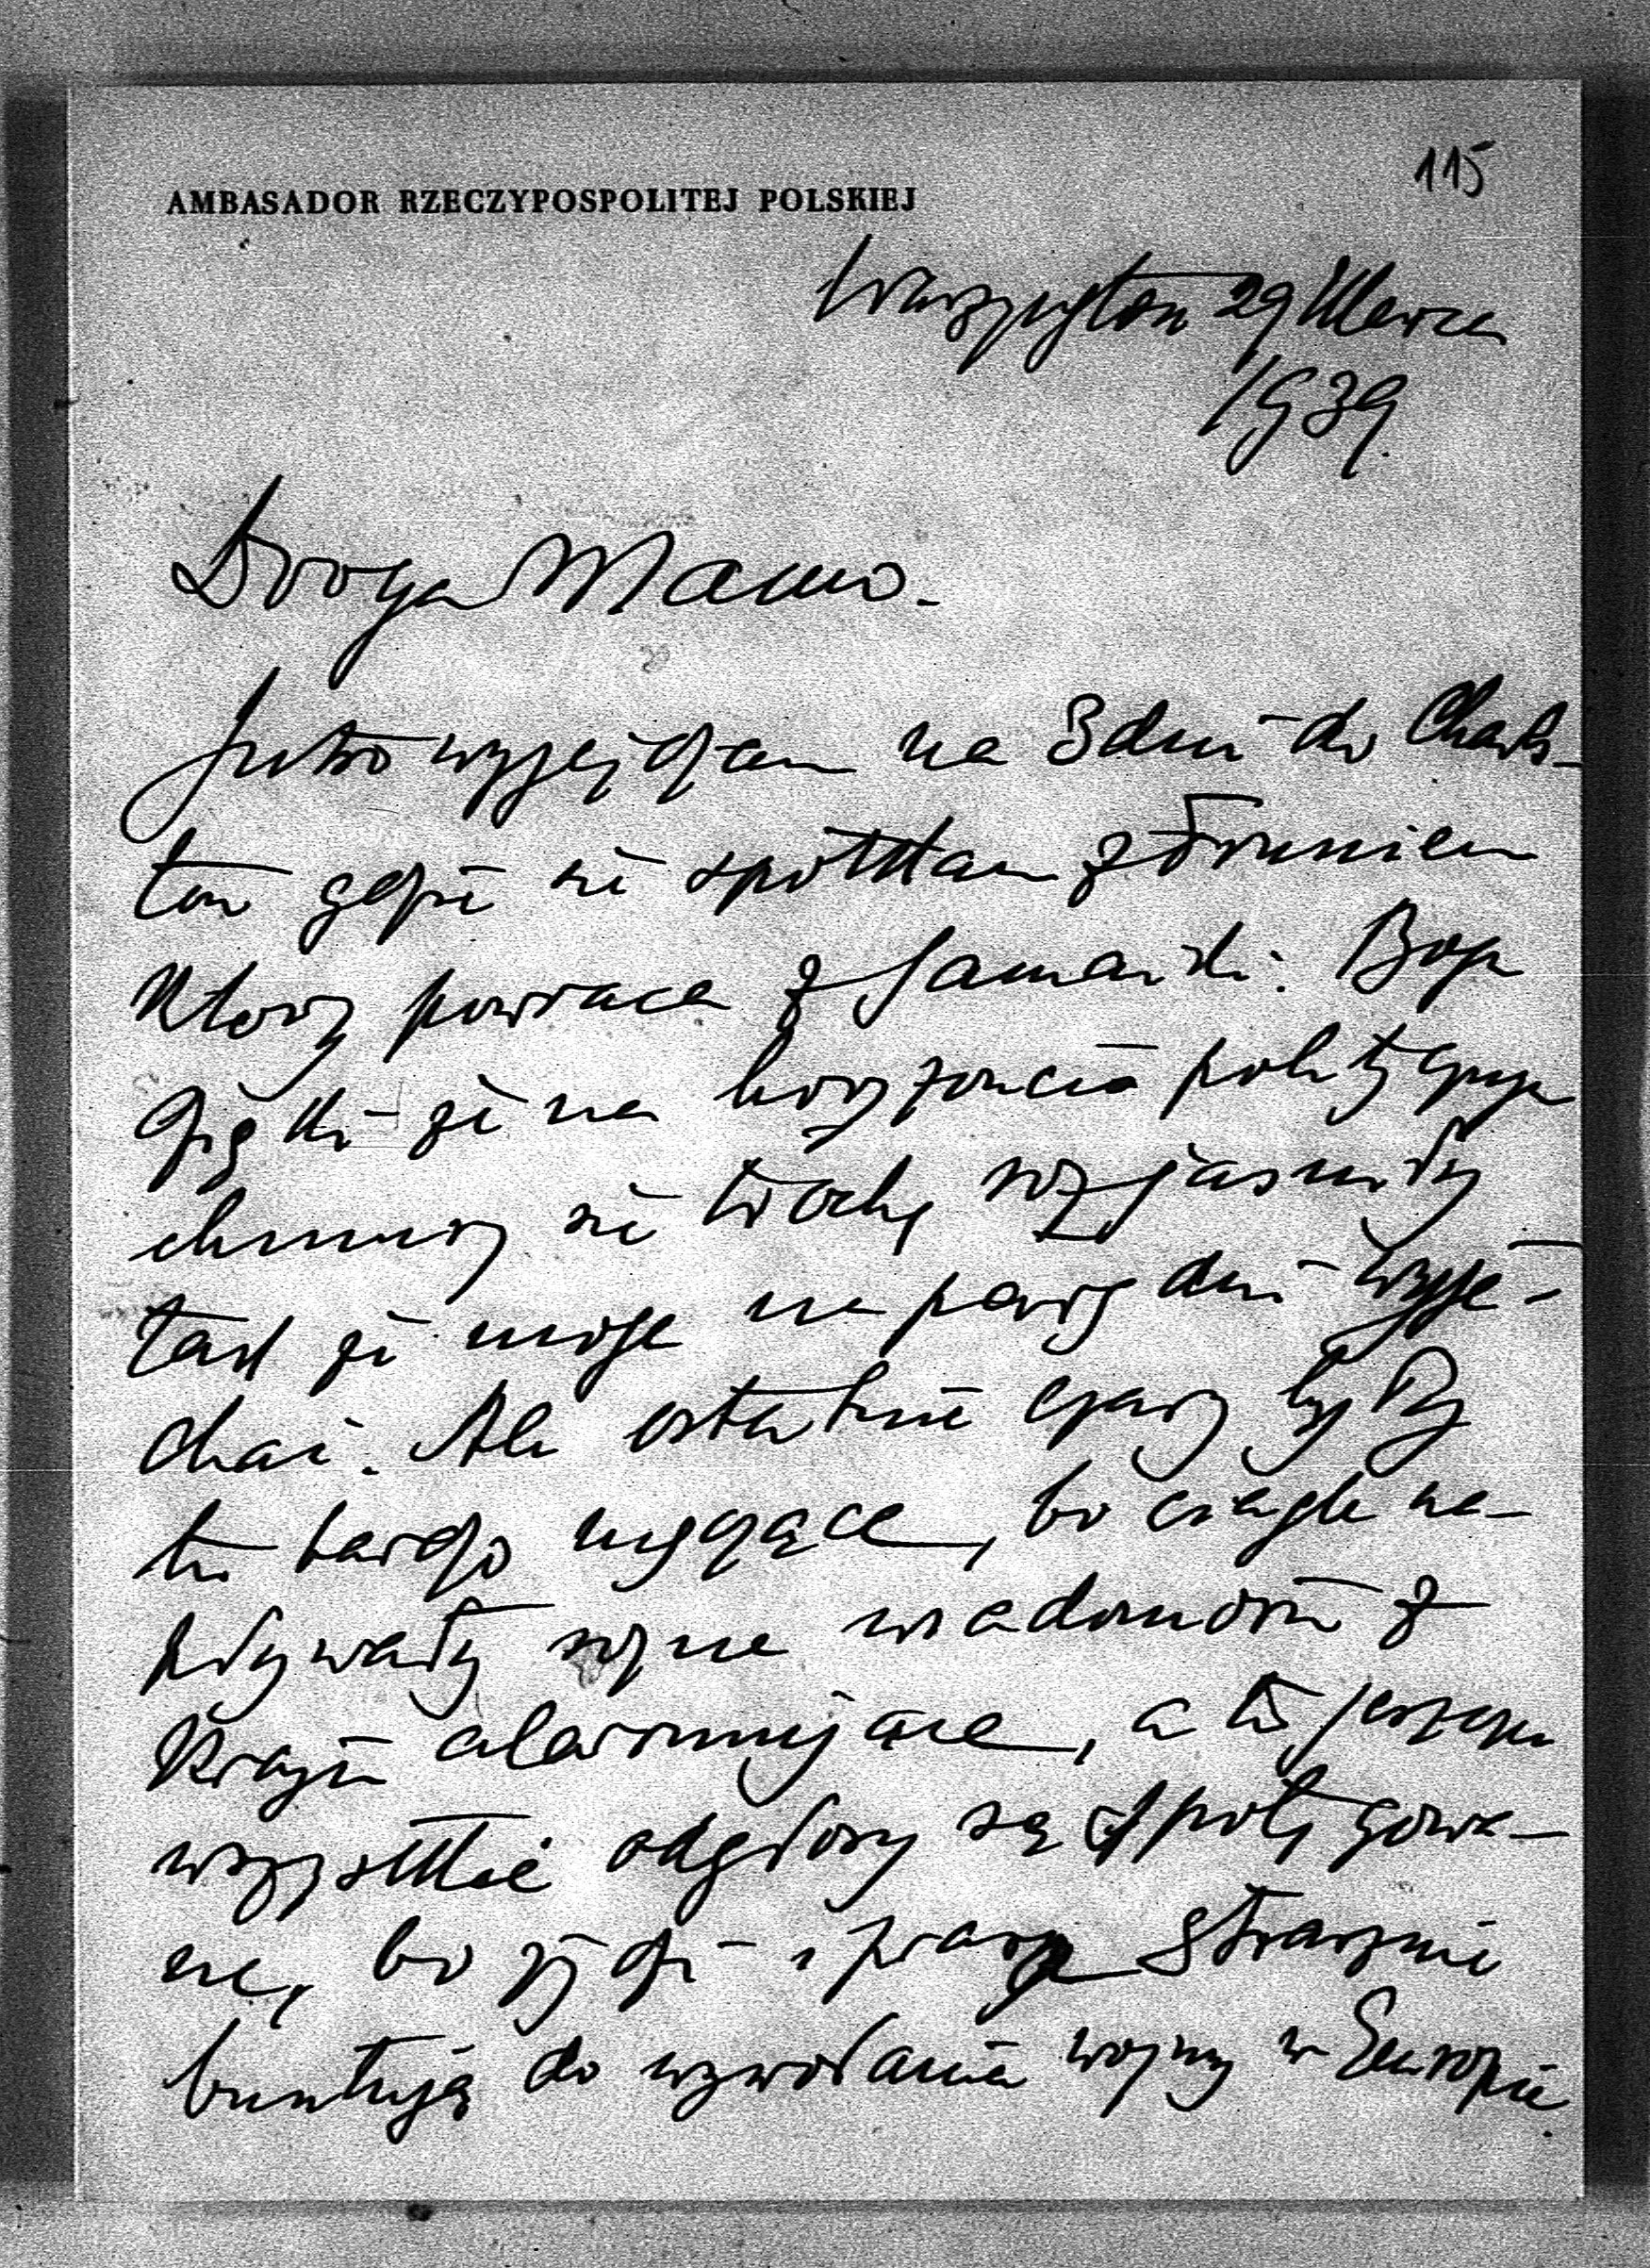 115
AMBASADOR RZECZYPOSPOLITEJ POLSKIEJ
Waszyngton 29 Marca
1939.
Droga Mamo.
Jutro wyjeżdżam na 3 dni do Charls-
ton gdzie się spotkam z
który powraca z Jamaiki. Bogu
Dzięki że na horyzoncie politycznym
chmury się trochę rozjaśniły
tak że mogę na parę dni wyje-
chać. Ale ostatnie czasy były
tu bardzo męczące, bo ciągle na-
pływały różne wiadomości z
Kraju alarmujące, a tu jeszcze
wszystkie odgłosy są spotęgowa-
ne, bo żydzi i prasa strasznie
buntują do wywołania wojny w Europie